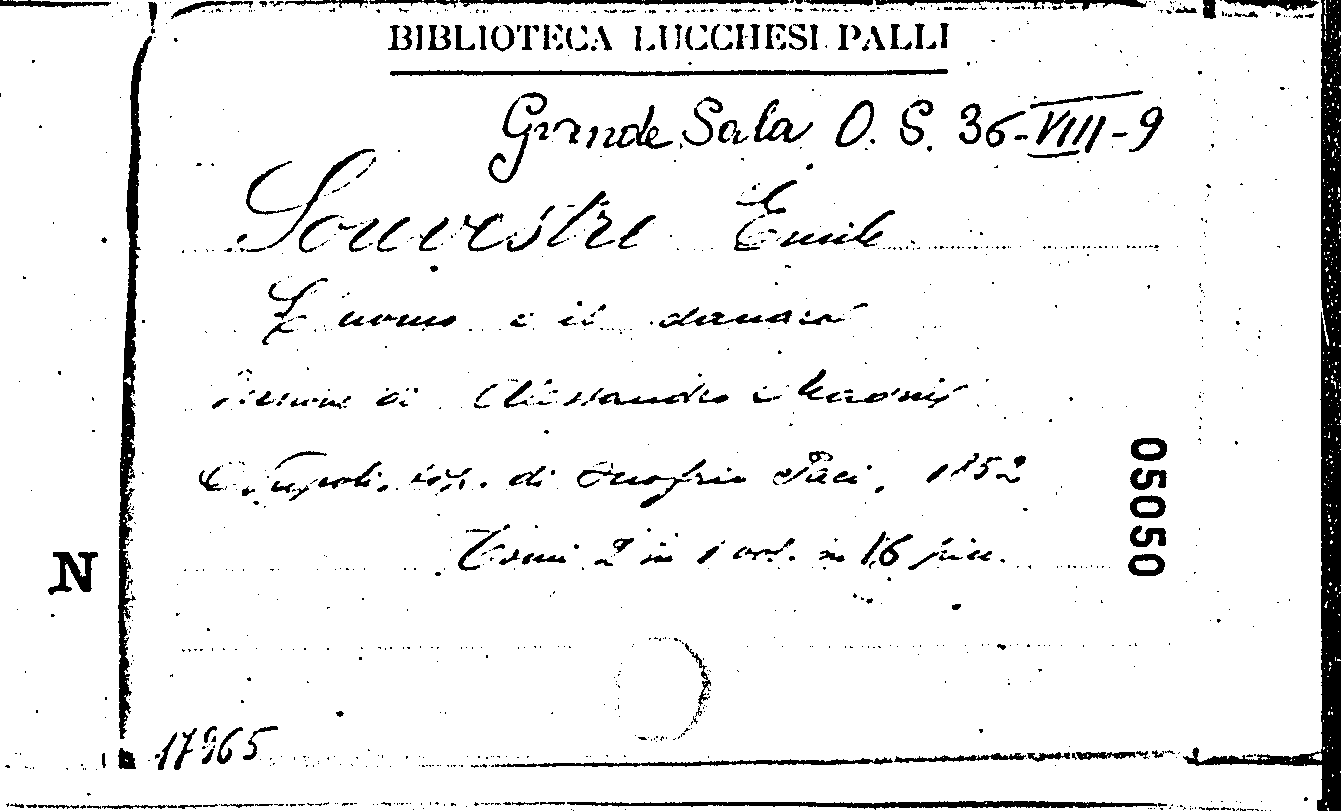 BIBLIOTECA LUCCHESI PALLI
Grande Sala O. S. 36-VIII-9
Souvestre Emile
L'uomo e il danaro
Versione di Alessandro
Napoli, tip. di Onofrio Paci, 1852
Tomi 2 in 1 vol. in 16 picc.
05050
N
17965